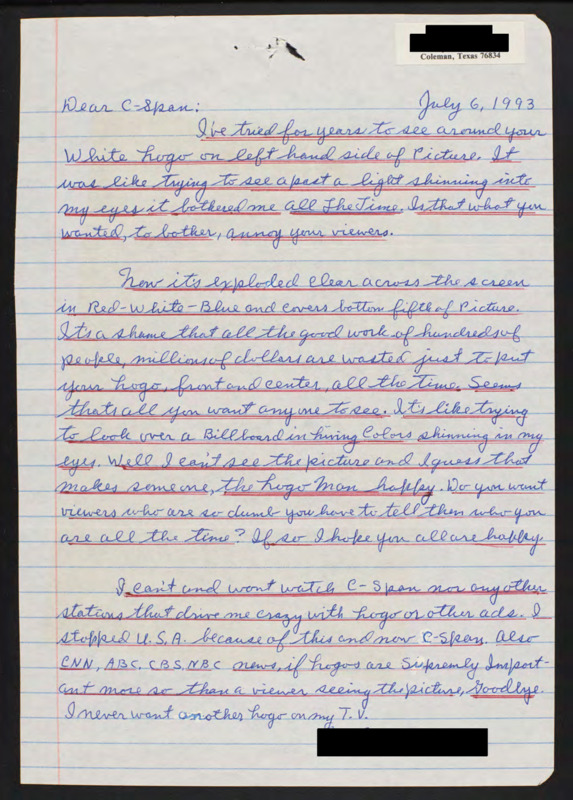 Coleman, Texas 76834
Dear C-Span: July 6, 1993
I've tried for years to see around your
White Logo on left hand side of Picture. It
was like trying to see a past a light shinning into
my eyes it bothered me all The Time. Is that what you
wanted, to bother, annoy your viewers.
Now it's exploded clear across the screen
in Red-White-Blue and covers bottom fifth of Picture.
It's a shame that all the good work of hundreds of
people, millions of dollars are wasted just to put
your Logo, front and center, all the time. Seems
thats all you want anyone to see. It's like trying
to look over a Billboard in living Colors shinning in my
eyes. Well I can't see the picture and I guess that
makes someone, the Logo Man happy. Do you want
viewers who are so dumb you have to tell them who you
are all the time? If so I hope you all are happy.
I can't and wont watch C-Span nor any other
stations that drive me crazy with Logo or other ads. I
stopped U.S.A. because of this and now C-Span. Also
CNN, ABC, CBS, NBC news, if Logos are Supremly Import-
ant more so than a viewer seeing the picture, Goodbye.
I never want another Logo on my T.V.